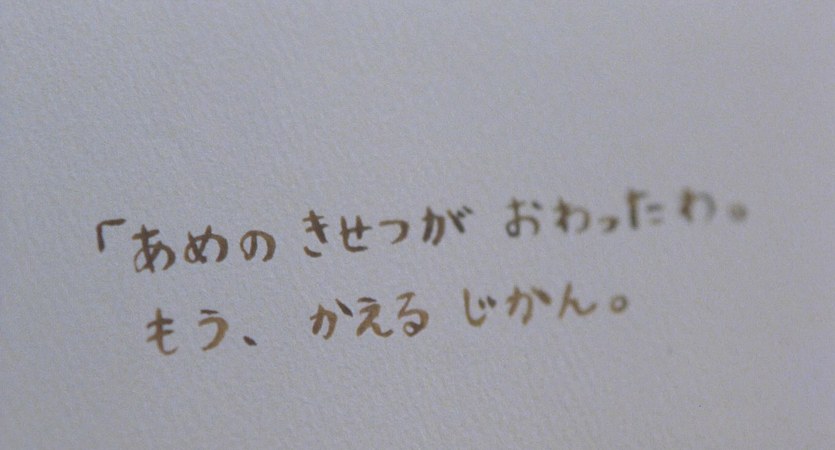 「あめの きせつが おわったわ。
もう、 かえる じかん。